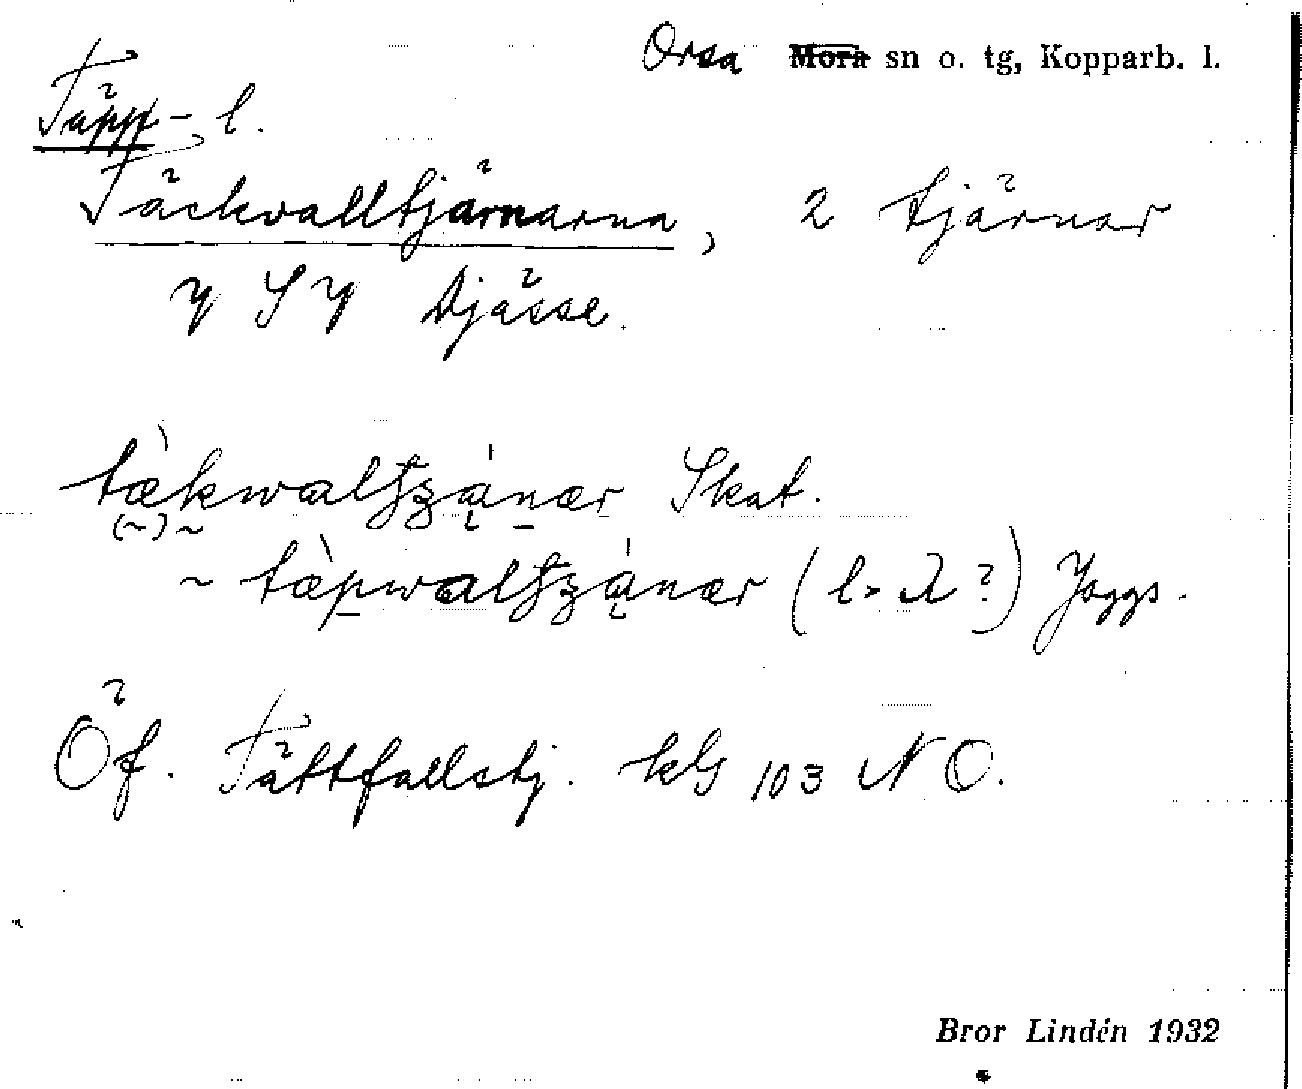 Orsa ~~Mora~~ sn o. tg, Kopparb. l.
Täpp- l.
Täckvalltjärnarna, 2 tjärnar
V SV Djässe.
tæ̀kwaltʒánær Skat.
~ tæ̀pwaltʒánær (l. λ?) Joggs.
Öf. Tättfallstj. kbl 103 NO.
Bror Lindén 1932